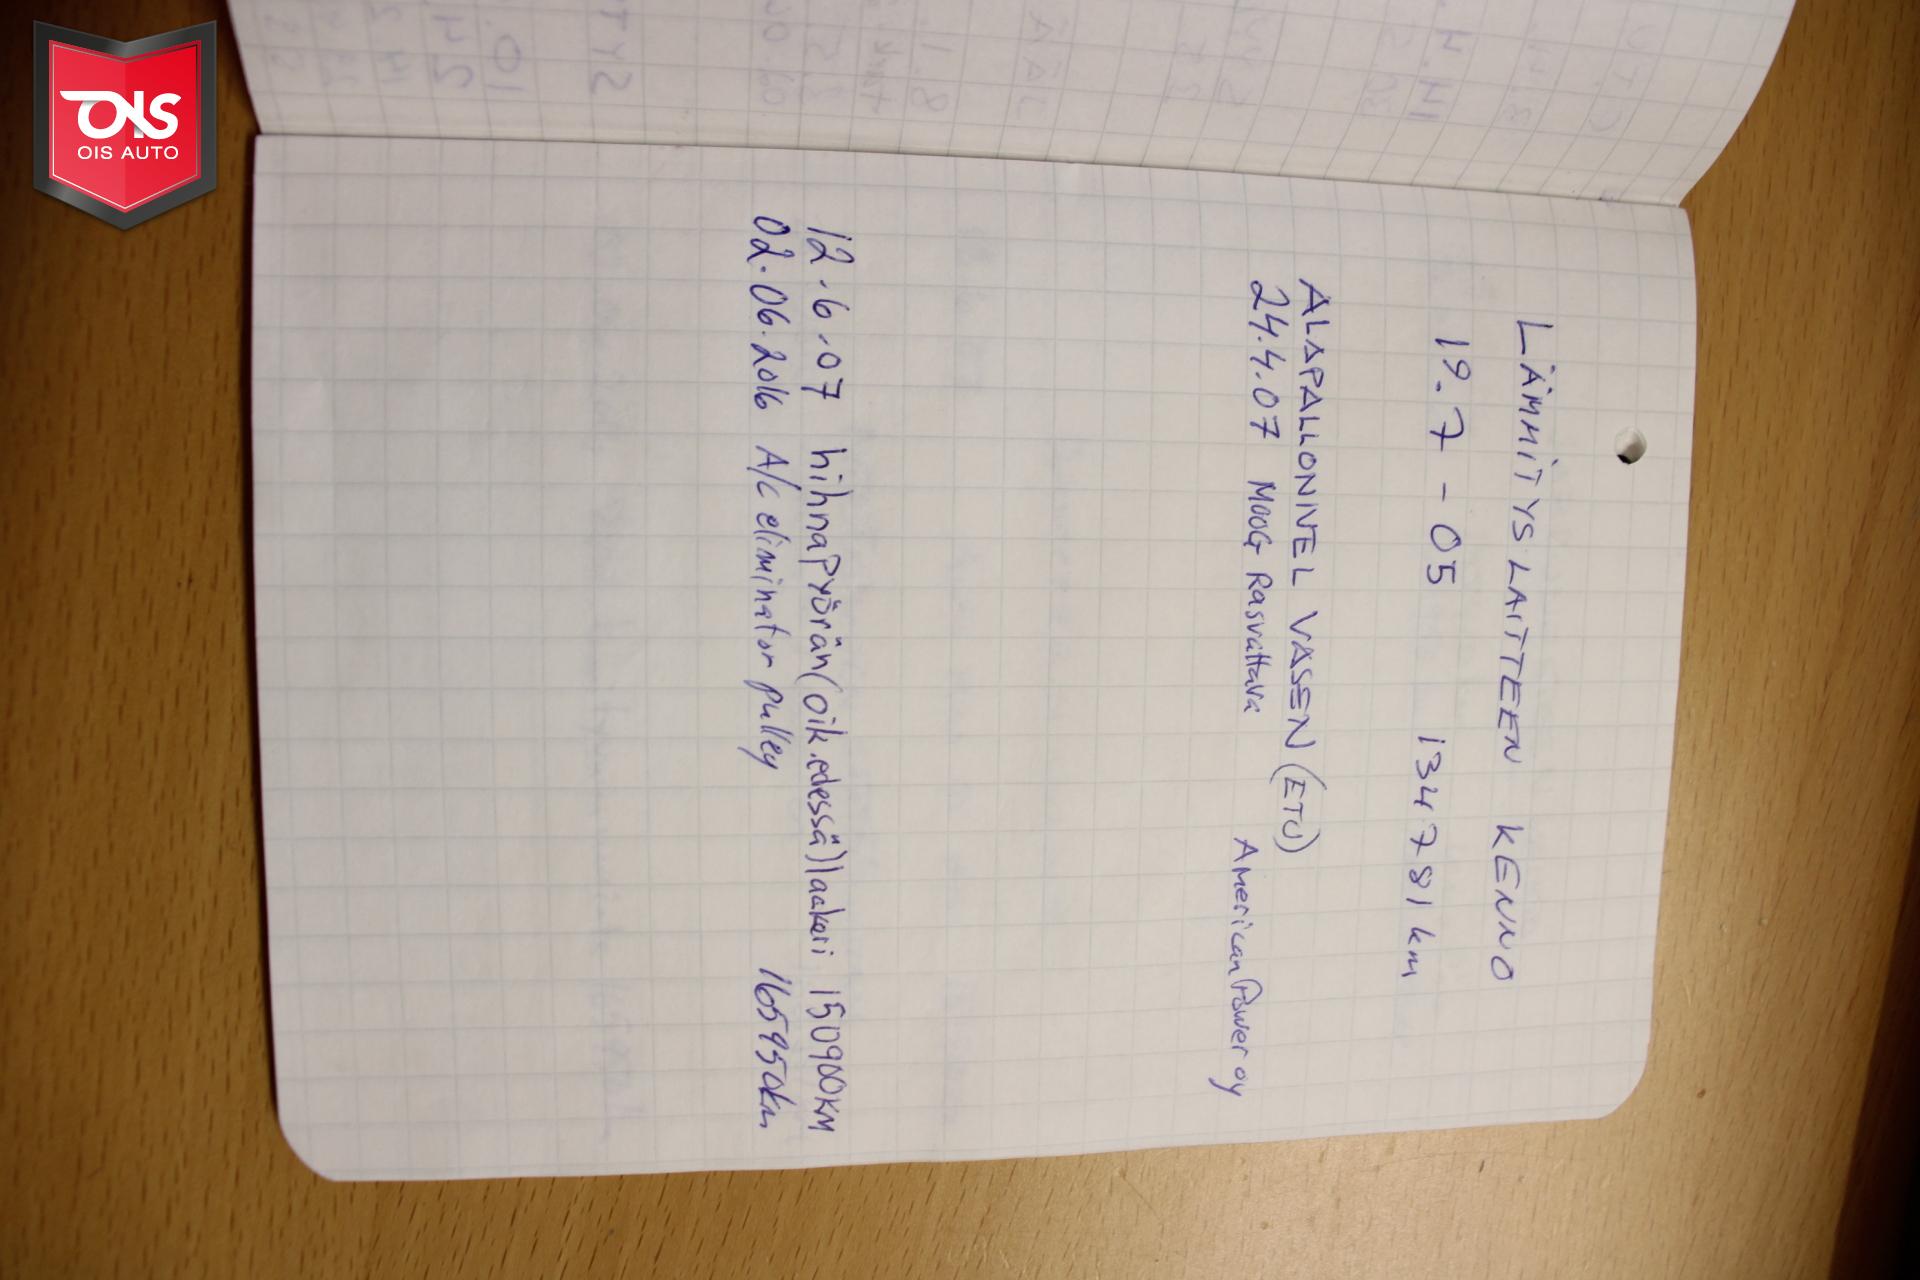 OIS
OIS AUTO
LÄMMITYSLAITTEEN KENNO
19.7-05 134781 km
ALAPALLONIVEL VASEN (ETU)
24.4.07 MOOG Rasvattava American Power oy
12.6.07 hihnapyörän (oik.edessä) laakeri 150900KM
02.06.2016 A/c eliminator pulley 165950km